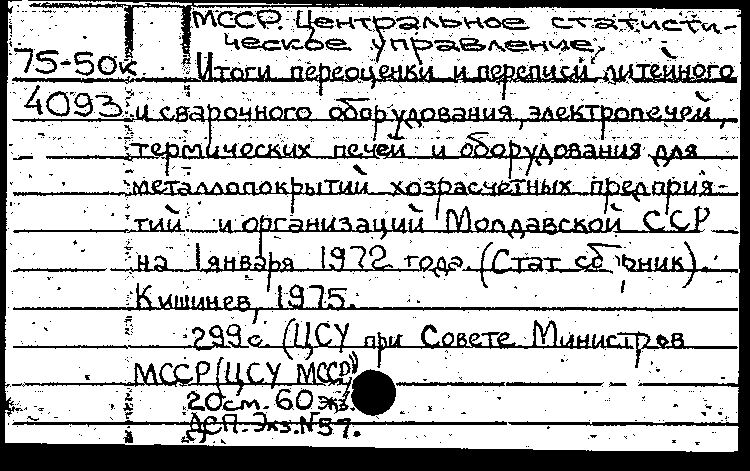 МССР. Центральное статисти-
ческое управление.
75-50к Итоги переоценки и переписи литейного
4093 и сварочного оборудования, электропечей,
термических печей и оборудования для
металлопокрытий хозрасчетных предприя-
тий и организаций Молдавской ССР
на 1 января 1972 года. (Стат. сборник).
Кишинев, 1975.
299 с. (ЦСУ при Совете Министров
МССР (ЦСУ МССР)
20 см. 60 экз.
ДСП. Экз. N 57.